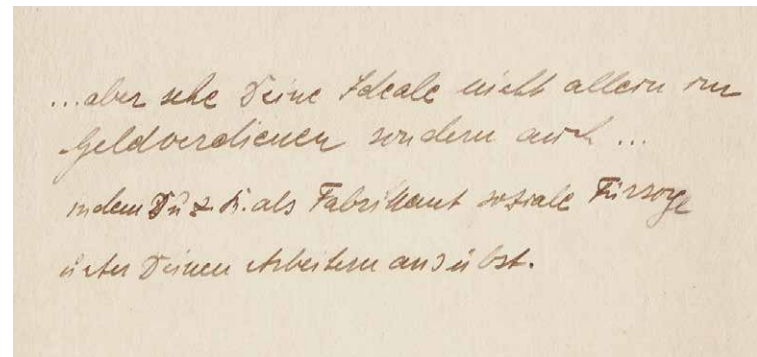 ...aber sehe Deine Ideale nicht allein im
Geldverdienen sondern auch ...
indem Du z. B. als Fabrikant soziale Fürsorge
unter Deinen Arbeitern ausübst.